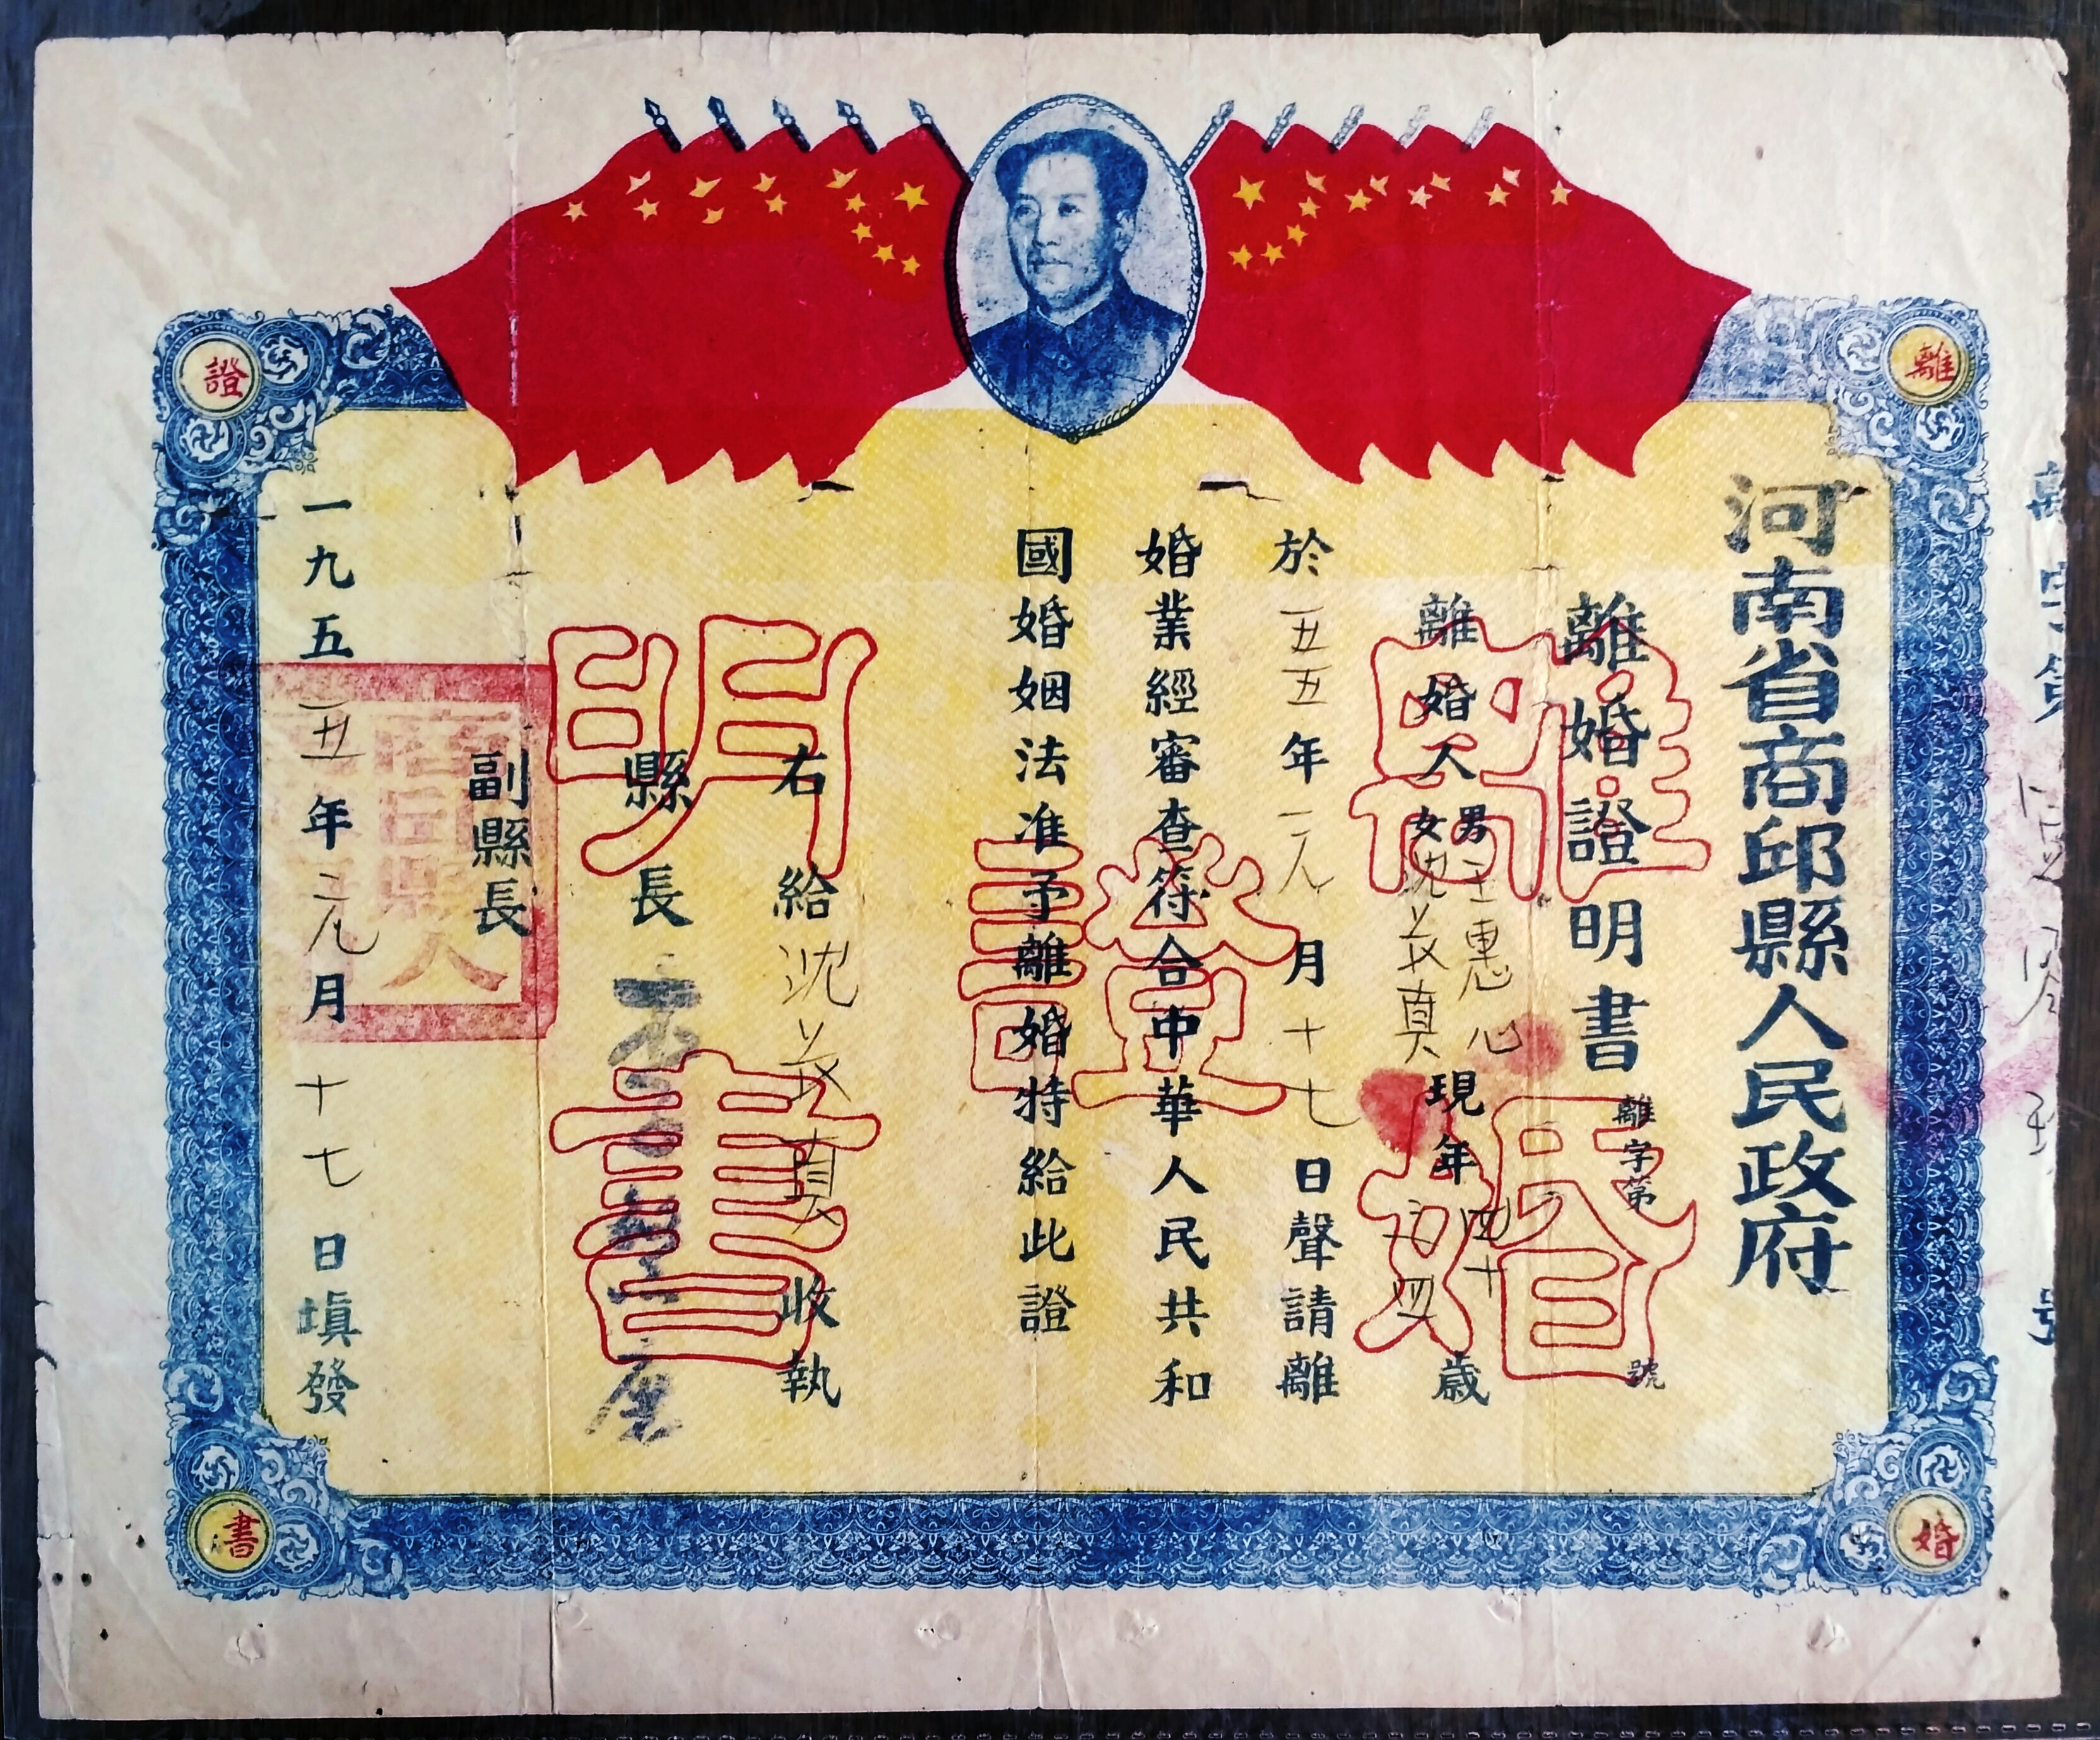 河南省商邱縣人民政府
離婚證明書
離字第 號
離婚人男王惠心現年四十歲
女沈義真 四
於一五五年 月十七日聲請離
婚業經審查符合中華人民共和
國婚姻法准予離婚特給此證
右給沈義真收執
縣長
副縣長
一九五 五年 月十七日填發
離
婚
證
書
離婚證明書
商邱縣人